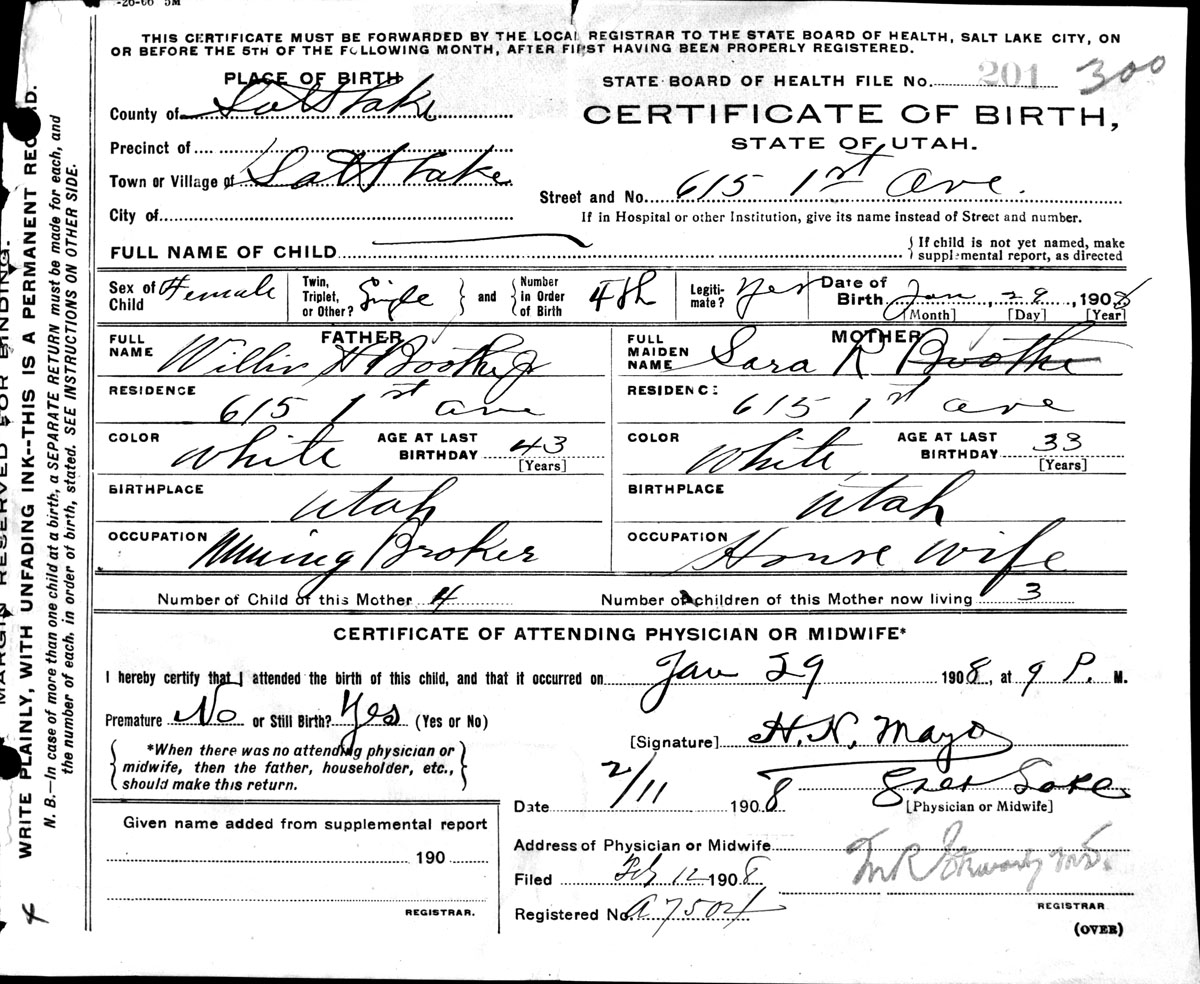 -26-06 5M
THIS CERTIFICATE MUST BE FORWARDED BY THE LOCAL REGISTRAR TO THE STATE BOARD OF HEALTH, SALT LAKE CITY, ON
OR BEFORE THE 5TH OF THE FOLLOWING MONTH, AFTER FIRST HAVING BEEN PROPERLY REGISTERED.
PLACE OF BIRTH
County of Salt Lake
Precinct of
Town or Village of Salt Lake
City of
STATE BOARD OF HEALTH FILE No. 201 300
CERTIFICATE OF BIRTH,
STATE OF UTAH.
Street and No. 615 1st Ave.
If in Hospital or other Institution, give its name instead of Street and number.
FULL NAME OF CHILD
{ If child is not yet named, make
supplemental report, as directed
Sex of Child Female
Twin, Triplet, or Other? Single } and { Number in Order of Birth 4th
Legiti-mate? Yes
Date of Birth Jan, 29, 1908
[Month] [Day] [Year]
FATHER
FULL NAME Booth Jr
RESIDENCE
615 1st ave
COLOR White AGE AT LAST BIRTHDAY 43
[Years]
BIRTHPLACE
Utah
OCCUPATION Mining Broker
MOTHER
FULL MAIDEN NAME Sara R Boothe
RESIDENCE
615 1st ave
COLOR White AGE AT LAST BIRTHDAY 33
[Years]
BIRTHPLACE
Utah
OCCUPATION House Wife
Number of Child of this Mother 4
Number of children of this Mother now living 3
CERTIFICATE OF ATTENDING PHYSICIAN OR MIDWIFE*
I hereby certify that I attended the birth of this child, and that it occurred on Jan 29 1908, at 9 P. M.
Premature No or Still Birth? Yes (Yes or No)
{ *When there was no attending physician or
midwife, then the father, householder, etc.,
should make this return. }
[Signature] H. N. Mayo
Date 2/11 1908 Salt Lake
[Physician or Midwife]
Given name added from supplemental report
190
REGISTRAR.
Address of Physician or Midwife
Filed Feb 12 1908
REGISTRAR
Registered No. A7504
(OVER)
MARGIN RESERVED FOR BINDING.
WRITE PLAINLY, WITH UNFADING INK--THIS IS A PERMANENT RECORD.
N. B.—In case of more than one child at a birth, a SEPARATE RETURN must be made for each, and
the number of each. in order of birth, stated. SEE INSTRUCTIONS ON OTHER SIDE.